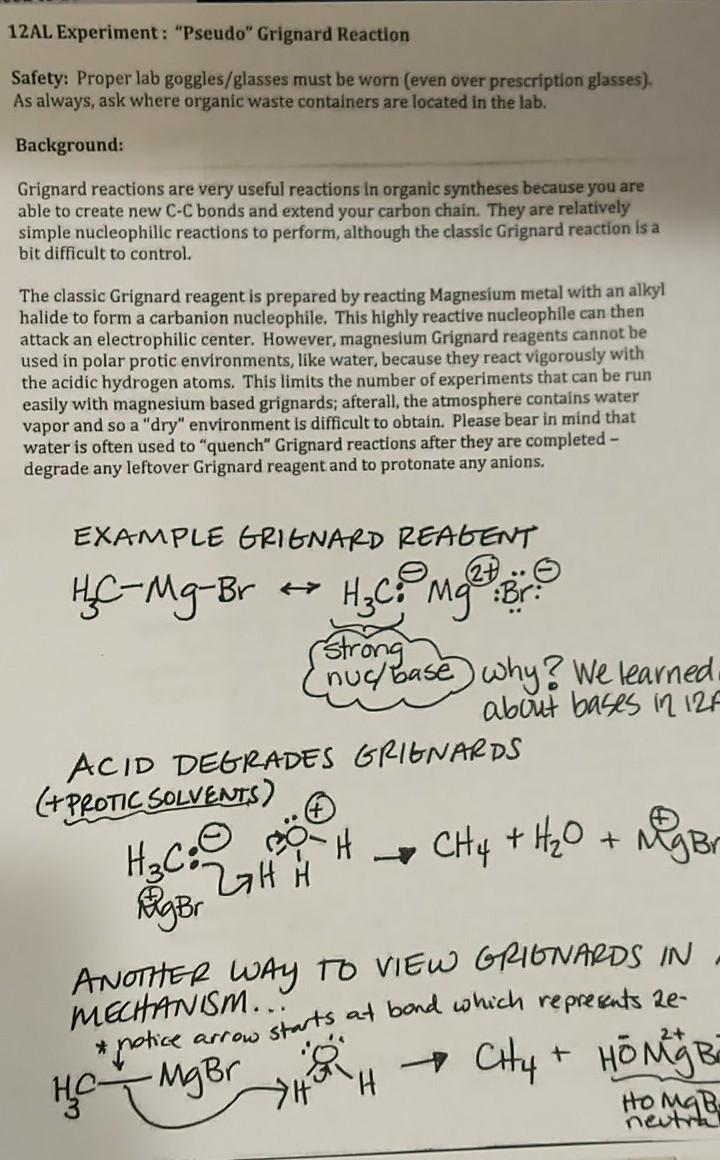 12AL Experiment : "Pseudo" Grignard Reaction
Safety: Proper lab goggles/glasses must be worn (even over prescription glasses).
As always, ask where organic waste containers are located in the lab.
Background:
Grignard reactions are very useful reactions in organic syntheses because you are
able to create new C-C bonds and extend your carbon chain. They are relatively
simple nucleophilic reactions to perform, although the classic Grignard reaction is a
bit difficult to control.
The classic Grignard reagent is prepared by reacting Magnesium metal with an alkyl
halide to form a carbanion nucleophile. This highly reactive nucleophile can then
attack an electrophilic center. However, magnesium Grignard reagents cannot be
used in polar protic environments, like water, because they react vigorously with
the acidic hydrogen atoms. This limits the number of experiments that can be run
easily with magnesium based grignards; afterall, the atmosphere contains water
vapor and so a "dry" environment is difficult to obtain. Please bear in mind that
water is often used to "quench" Grignard reactions after they are completed –
degrade any leftover Grignard reagent and to protonate any anions.
EXAMPLE GRIGNARD REAGENT
H₃C–Mg–Br ↔ H₃C:⊖ Mg 2+ :Br: ⊖
strong
nuc/base why? We learned
about bases in 12A
ACID DEGRADES GRIGNARDS
(+PROTIC SOLVENTS)
H₃C:⊖ H O H ⊕ → CH₄ + H₂O + ⊕MgBr
⊕MgBr H
ANOTHER WAY TO VIEW GRIGNARDS IN
MECHANISM...
* notice arrow starts at bond which represents 2e-
H₃C–MgBr H O H → CH₄ + HO⁻ Mg 2+ B
HO MgB
neutral